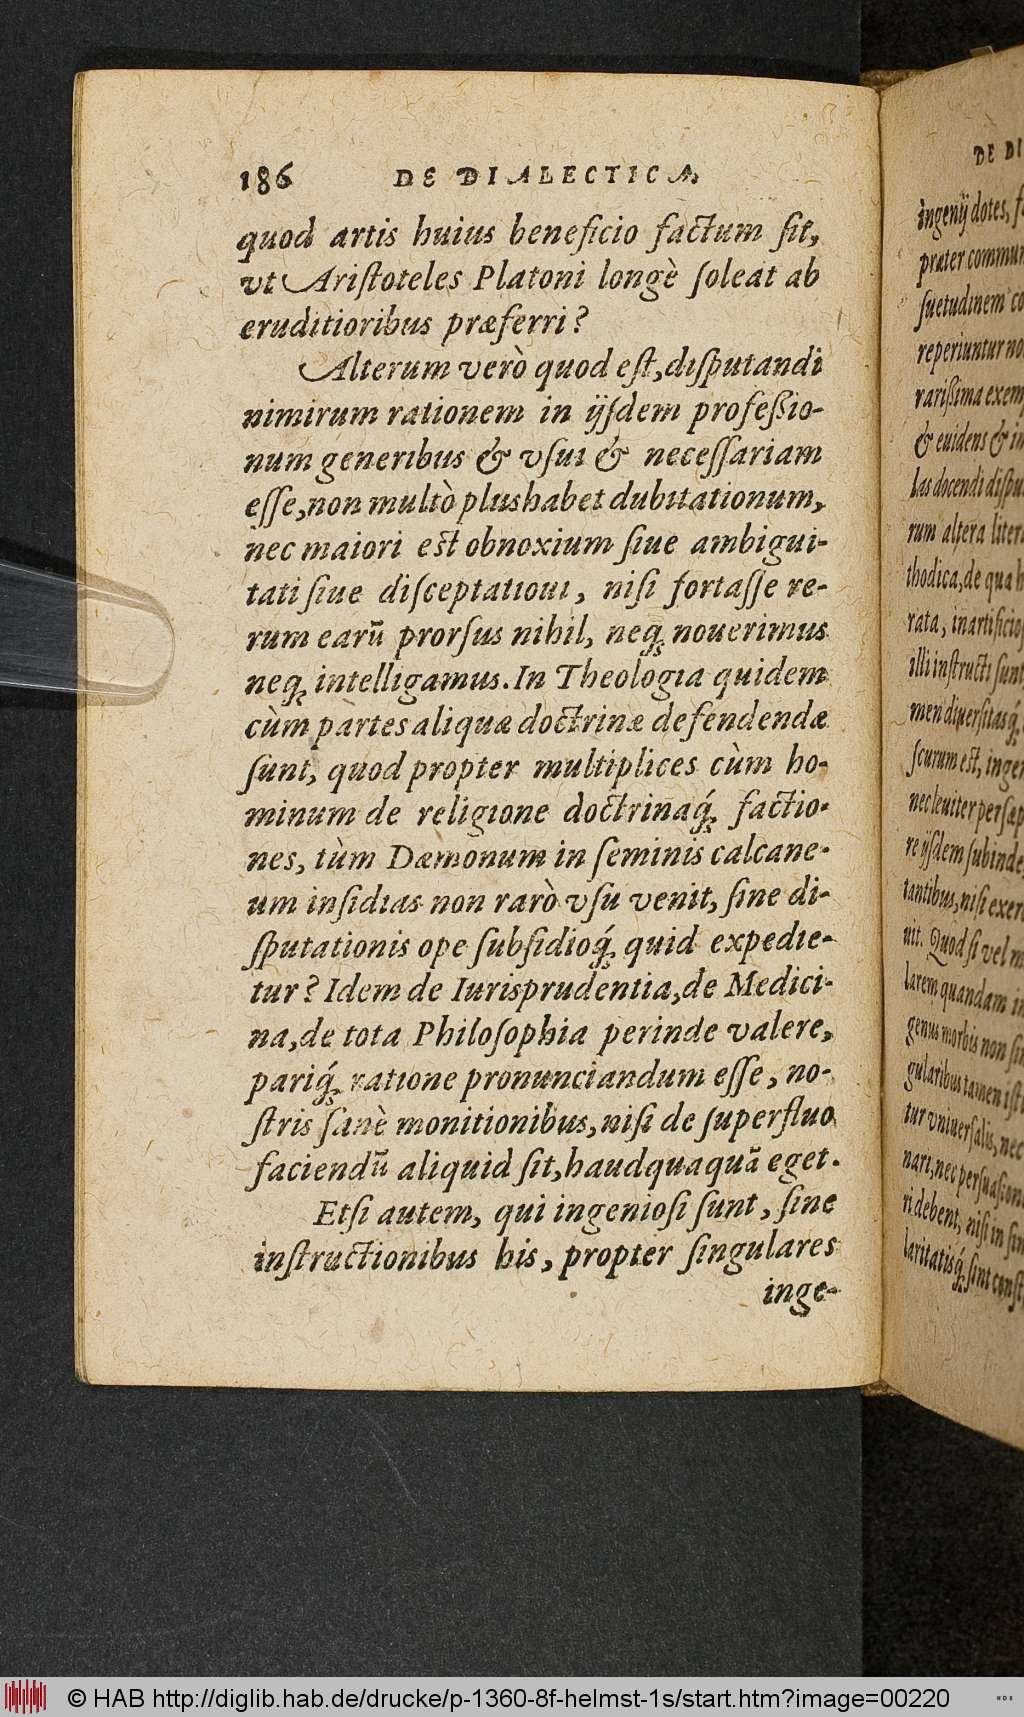 186 DE DIALECTICA.
quod artis huius beneficio factum ſit,
vt Ariſtoteles Platoni longè ſoleat ab
eruditioribus præferri?
Alterum verò quod eſt, diſputandi
nimirum rationem in ijſdem profeßio-
num generibus & vſui & neceſſariam
eſſe, non multò plus habet dubitationum,
nec maiori est obnoxium ſiue ambigui-
tati ſiue diſceptationi, niſi fortaſſe re-
rum earũ prorſus nihil, neq; nouerimus
neq; intelligamus. In Theologia quidem
cùm partes aliquæ doctrinæ defendendæ
ſunt, quod propter multiplices cùm ho-
minum de religione doctrinaq́; factio-
nes, tùm Dæmonum in ſeminis calcane-
um inſidias non rarò vſu venit, ſine di-
ſputationis ope ſubſidioq́; quid expedie-
tur? Idem de Iurisprudentia, de Medici-
na, de tota Philoſophia perinde valere,
pariq́; ratione pronunciandum eſſe, no-
ſtris ſanè monitionibus, niſi de ſuperfluo
faciendũ aliquid ſit, haudquaquã eget.
Etſi autem, qui ingenioſi ſunt, ſine
inſtructionibus his, propter ſingulares
inge-
DE DI
ingenij dotes,
præter commun
ſuetudinem co
reperiuntur no
rarißima exem
& euidens & in
las docendi diſpu
rum altera liter
thodica, de qua h
rata, inartificioſ
illi inſtructi ſunt
men diuerſitasq́;
ſcurum est, inge
nec leuiter perſæp
re ijſdem ſubinde
tantibus, niſi exer
uit. Quod ſi vel m
larem quandam in
genus morbis non ſin
gularibus tamen iſt
tur vniuerſalis, nec
nari, nec perſuaſion
ri debent, niſi in ſin
laritatisq́; ſint conſt
© HAB http://diglib.hab.de/drucke/p-1360-8f-helmst-1s/start.htm?image=00220